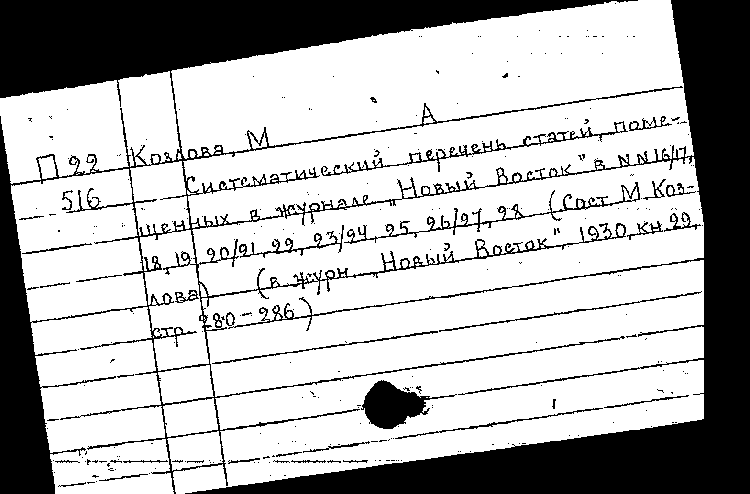 А
П 22 Козлова, М
516 Систематический перечень статей, поме-
щенных в журнале „Новый Восток" в NN 16/17,
18, 19, 20/21, 22, 23/24, 25, 26/27, 28 (Сост. М. Коз-
лова) (в журн. „Новый Восток", 1930, кн. 29,
стр. 280-286)